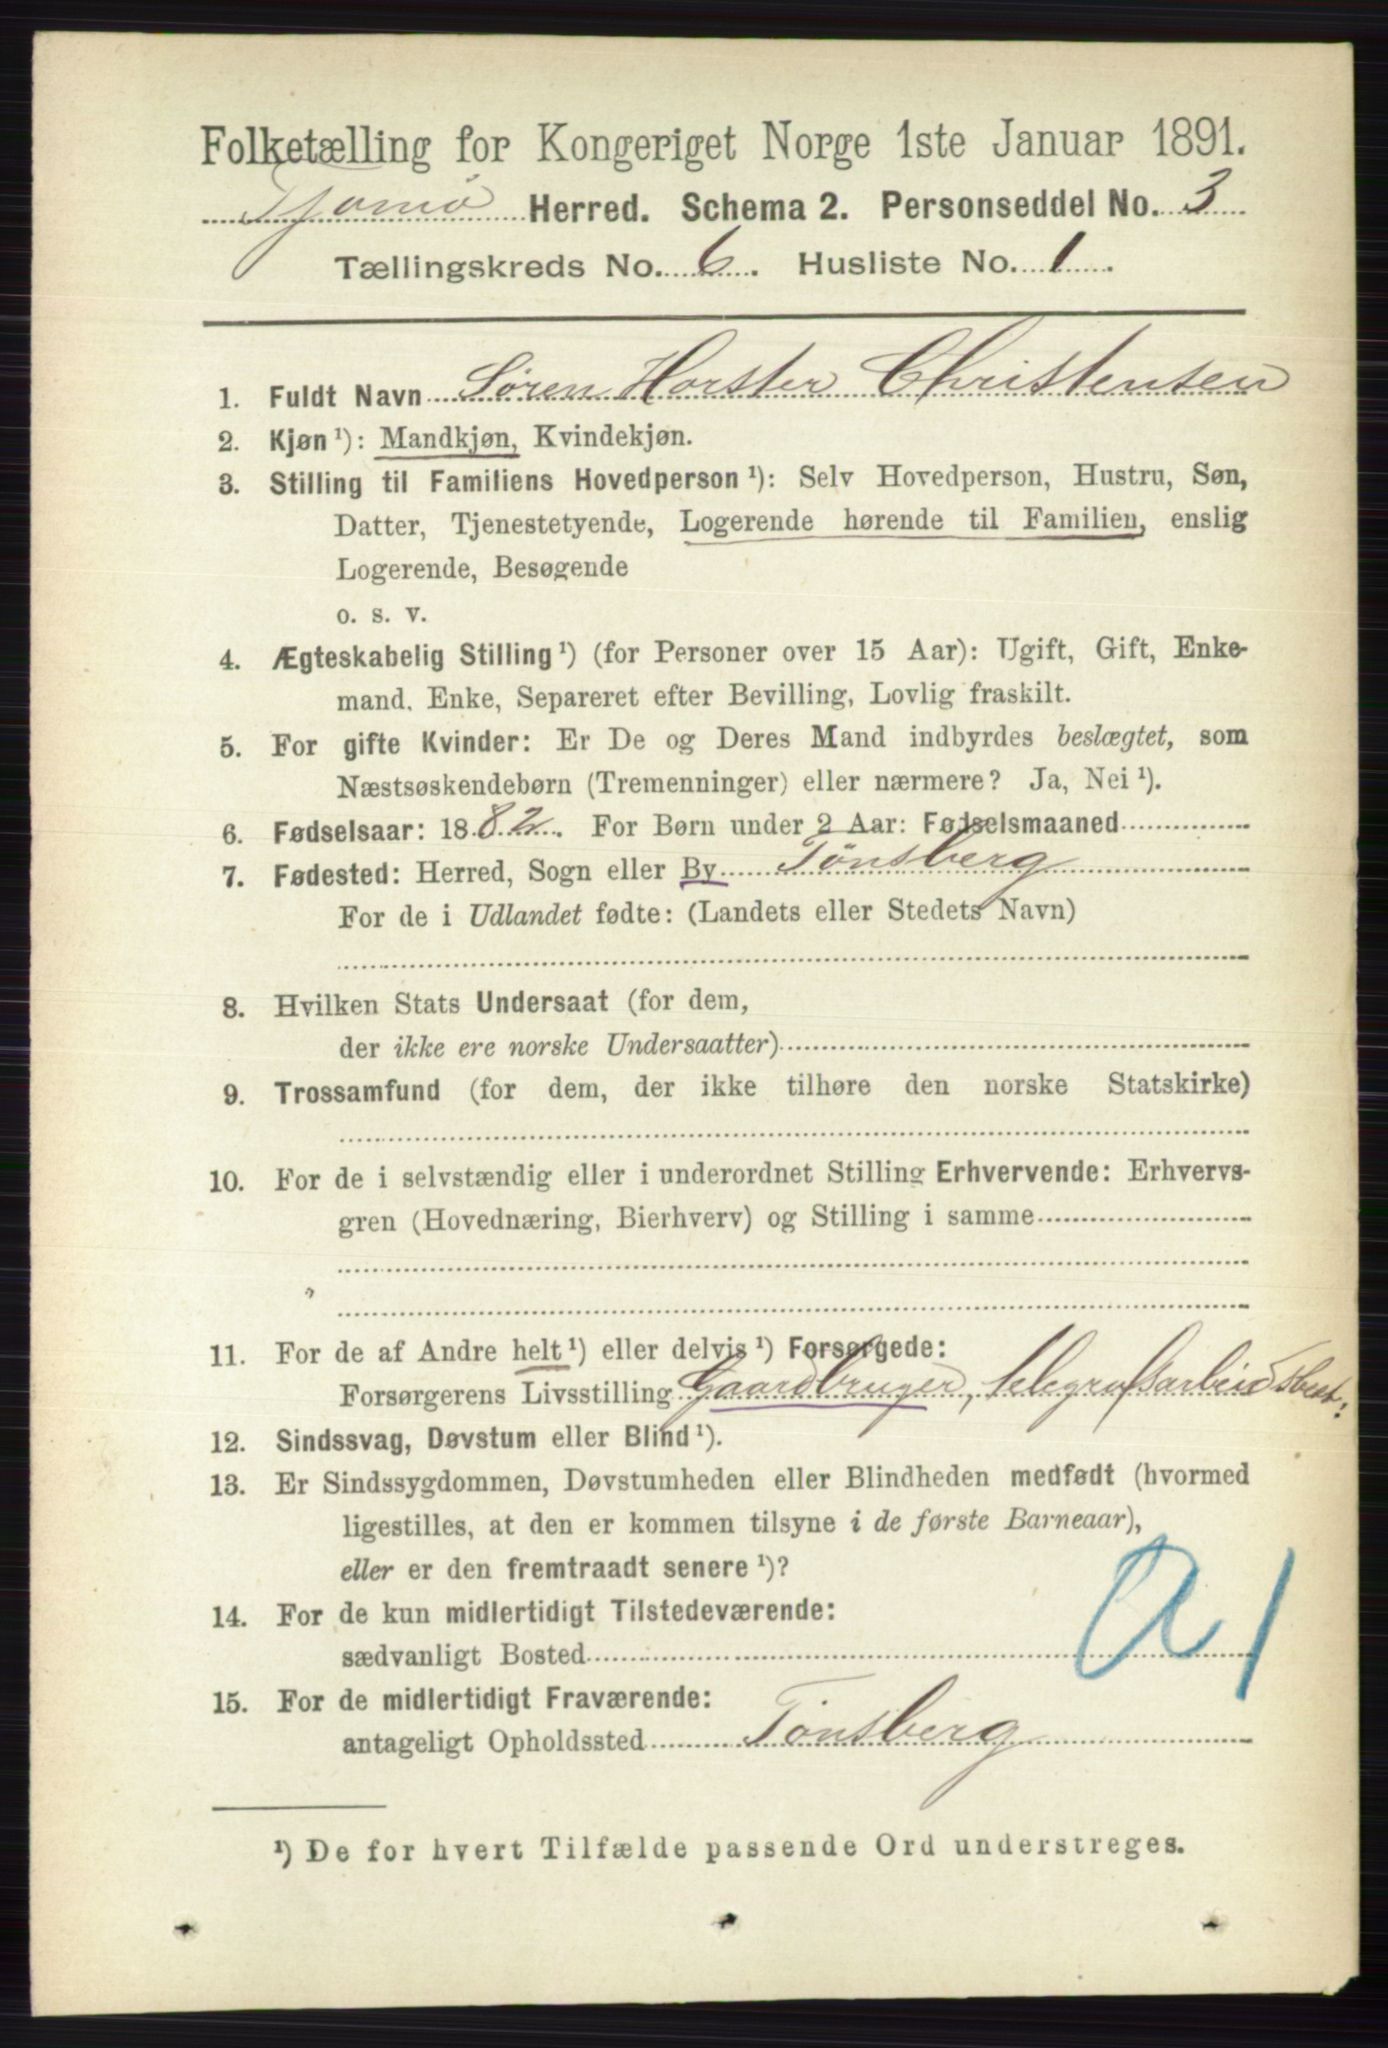 Folketælling for Kongeriget Norge 1ste Januar 1891.
Tjømø Herred. Schema 2. Personseddel No. 3
Tællingskreds No. 6. Husliste No. 1.
1. Fuldt Navn Søren Horster Christensen
2. Kjøn ¹): Mandkjøn, Kvindekjøn.
3. Stilling til Familiens Hovedperson ¹): Selv Hovedperson, Hustru, Søn,
Datter, Tjenestetyende, Logerende hørende til Familien, enslig
Logerende, Besøgende
o. s. v.
4. Ægteskabelig Stilling ¹) (for Personer over 15 Aar): Ugift, Gift, Enke-
mand, Enke, Separeret efter Bevilling, Lovlig fraskilt.
5. For gifte Kvinder: Er De og Deres Mand indbyrdes beslægtet, som
Næstsøskendebørn (Tremenninger) eller nærmere? Ja, Nei ¹).
6. Fødselsaar: 1882. For Børn under 2 Aar: Fødselsmaaned
7. Fødested: Herred, Sogn eller By Tønsberg
For de i Udlandet fødte: (Landets eller Stedets Navn)
8. Hvilken Stats Undersaat (for dem,
der ikke ere norske Undersaatter)
9. Trossamfund (for dem, der ikke tilhøre den norske Statskirke)
10. For de i selvstændig eller i underordnet Stilling Erhvervende: Erhvervs-
gren (Hovednæring, Bierhverv) og Stilling i samme
11. For de af Andre helt ¹) eller delvis ¹) Forsørgede:
Forsørgerens Livsstilling Gaardbruger, telegrafsarbeidsbest.
12. Sindssvag, Døvstum eller Blind ¹).
13. Er Sindssygdommen, Døvstumheden eller Blindheden medfødt (hvormed
ligestilles, at den er kommen tilsyne i de første Barneaar),
eller er den fremtraadt senere ¹)?
14. For de kun midlertidigt Tilstedeværende:
sædvanligt Bosted
a 1
15. For de midlertidigt Fraværende:
antageligt Opholdssted Tønsberg
¹) De for hvert Tilfælde passende Ord understreges.